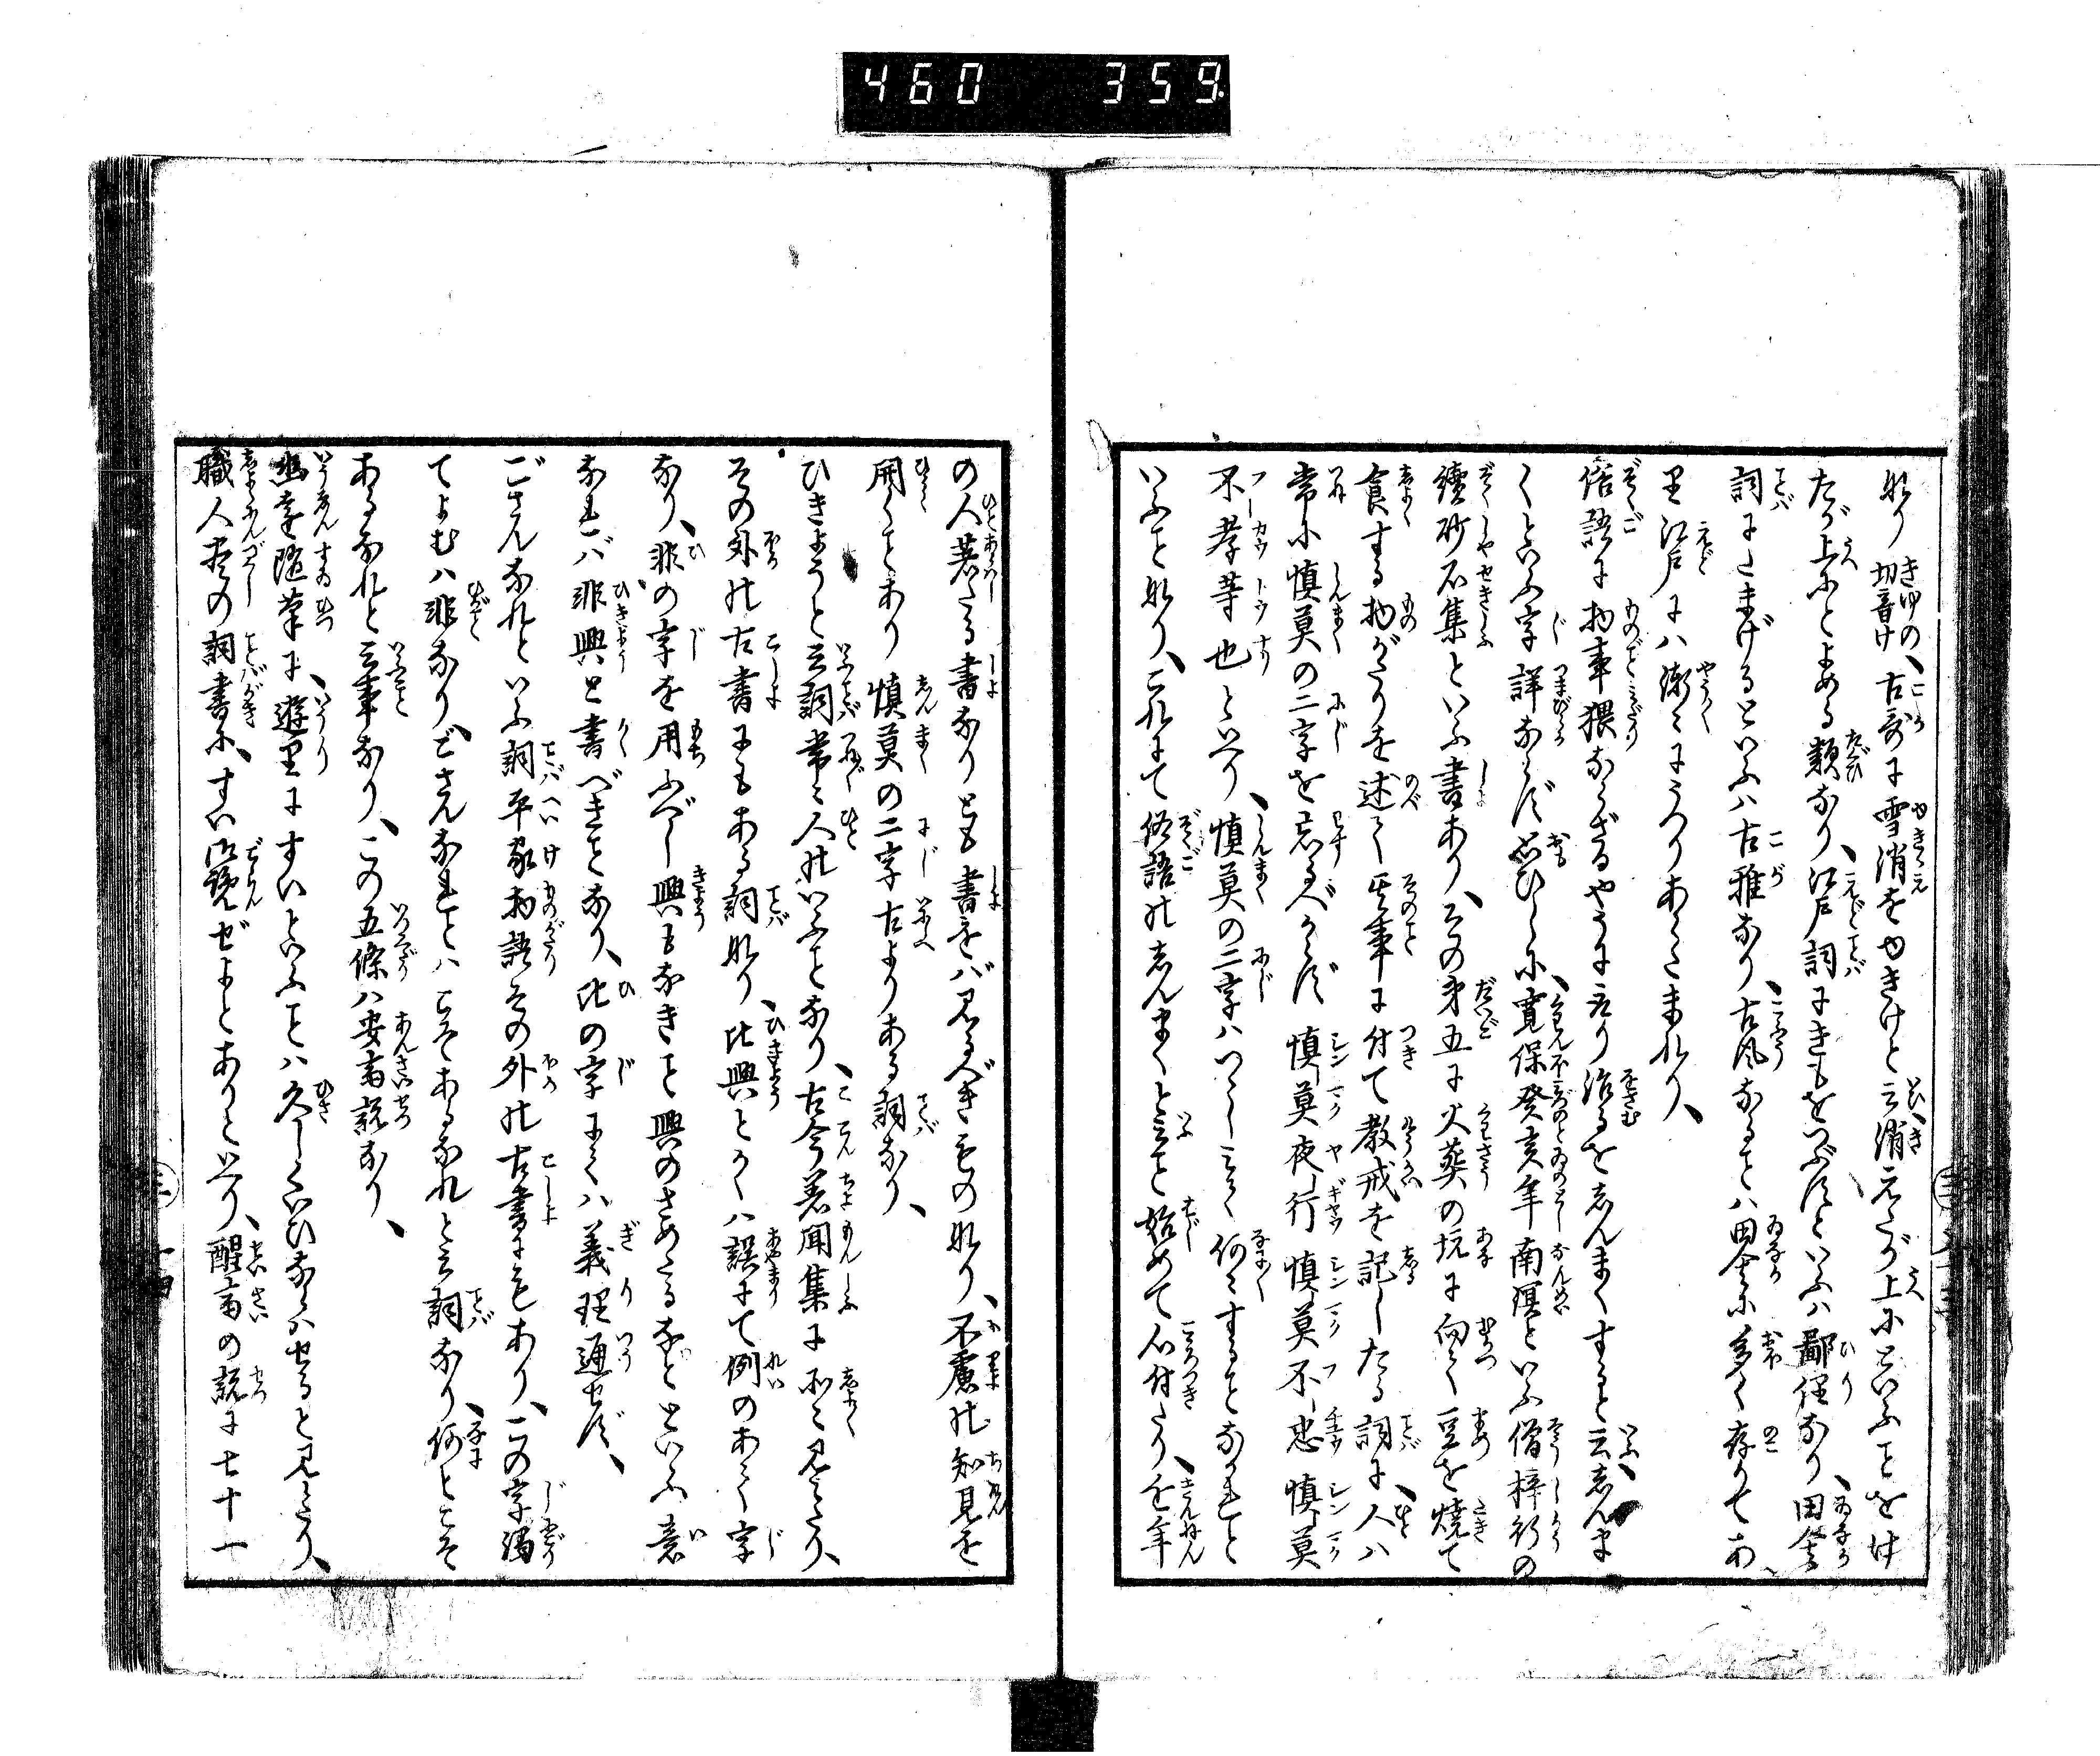 460 359
なり切音け、古哥に雪消をゆきけと云消えかゞ上にといふことをけ
たが上にとよめる類なり、江戸詞にきもをつぶすといふハ鄙俚なり、田舎
詞にたまげるといふハ古雅なり、古風なることハ田舎に多く存りてあ、
里江戸にハ漸々にうつりあらたまれり、
俗語に物事猥ならざるやうに取り治るをしんまくすると云、しんま
くといふ字詳ならず思ひしに、寛保癸亥年南溟といふ僧梓行の
續砂石集といふ書あり、その第五に火葬の坑に向て豆を焼て
食する物がたりを述て其事に付て教戒を記したる詞に、人ハ
常に慎莫の二字を忘るべからず慎莫夜行慎莫不忠慎莫
不孝等也といへり、慎莫の二字ハいましミて何々することなかれと
いふことなり、これにて俗語のしんまくと云こと始めて心付たり、近年
の人著たる書なりとも書をバ見るべきものなり、不慮の知見を
開くことあり慎莫の二字古よりある詞なり、
ひきようと云詞常々人のいふことなり、古今著聞集に所々見えたり、
その外の古書にもある詞なり、比興とかくハ誤にて例のあて字
なり、非の字を用ふべし興もなきこと興のさめたるなどといふ意
なれバ非興と書べきことなり、比の字にてハ義理通せず、
ごさんなれといふ詞平家物語その外の古書にもあり、この字濁
てよむハ非なり、ごさんなれとハこそあるなれと云詞なり、何とこそ
あるなれと云事なり、この五條ハ安斎説なり、
幽遠随筆に、遊里にすいといふことハ久しくいひならハせると見えたり、
職人尽の詞書に、すい御覧ぜよとありといへり、醒斎の説に七十一